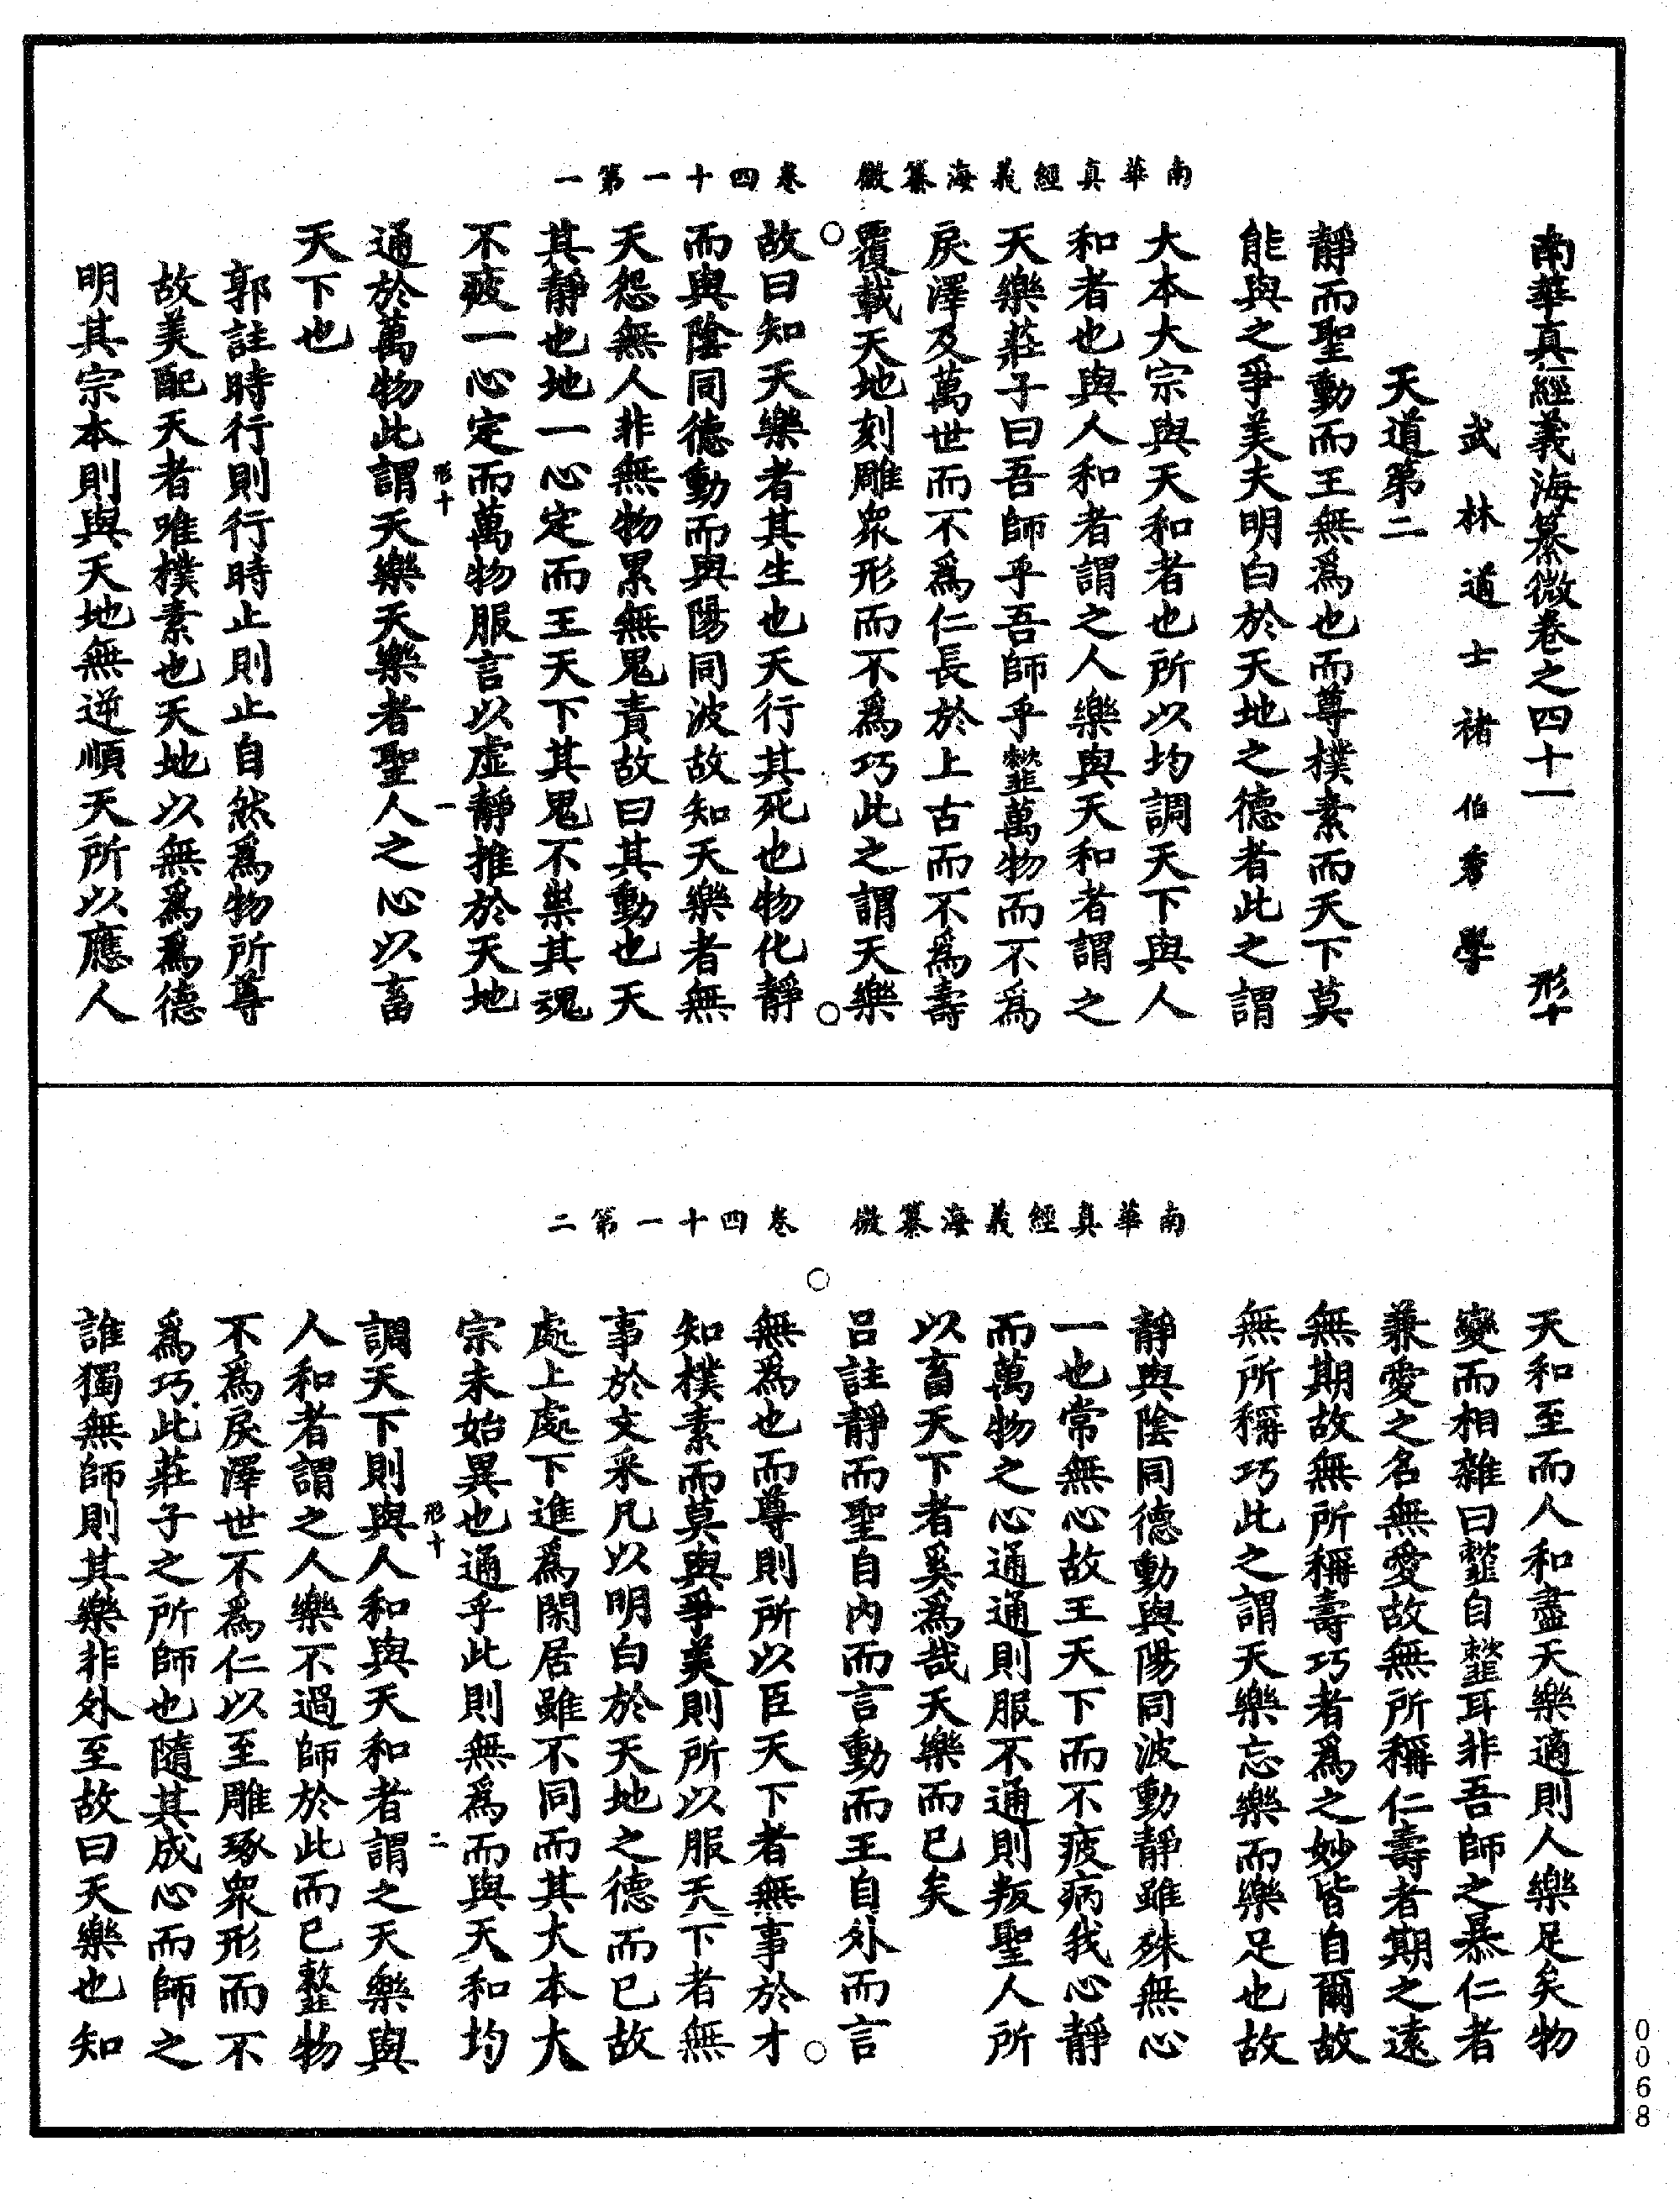 南華真經義海纂微 卷四十一第一
南華真經義海纂微卷之四十一 形十
武林道士褚伯秀學
天道第二
靜而聖動而王無為也而尊樸素而天下莫
能與之爭美夫明白於天地之德者此之謂
大本大宗與天和者也所以均調天下與人
和者也與人和者謂之人樂與天和者謂之
天樂莊子曰吾師乎吾師乎𩐋萬物而不為
戾澤及萬世而不為仁長於上古而不為壽
覆載天地刻雕衆形而不為巧此之謂天樂
故曰知天樂者其生也天行其死也物化靜
而與陰同德動而與陽同波故知天樂者無
天怨無人非無物累無鬼責故曰其動也天
其靜也地一心定而王天下其鬼不祟其魂
不疲一心定而萬物服言以虛靜推於天地
形十 一
通於萬物此謂天樂天樂者聖人之心以畜
天下也
郭註時行則行時止則止自然為物所尊
故美配天者唯樸素也天地以無為為德
明其宗本則與天地無逆順天所以應人
南華真經義海纂微 卷四十一第二
天和至而人和盡天樂適則人樂足矣物
變而相雜曰𩐋自𩐋耳非吾師之暴仁者
兼愛之名無愛故無所稱仁壽者期之遠
無期故無所稱壽巧者為之妙皆自爾故
無所稱巧此之謂天樂忘樂而樂足也故
靜與陰同德動與陽同波動靜雖殊無心
一也常無心故王天下而不疲病我心靜
而萬物之心通通則服不通則叛聖人所
以畜天下者奚為哉天樂而已矣
呂註靜而聖自內而言動而王自外而言
無為也而尊則所以臣天下者無事於才
知樸素而莫與爭美則所以服天下者無
事於文采凡以明白於天地之德而已故
處上處下進為閑居雖不同而其大本大
宗未始異也通乎此則無為而與天和均
形十 二
調天下則與人和與天和者謂之天樂與
人和者謂之人樂不過師於此而已𩐋物
不為戾澤世不為仁以至雕琢衆形而不
為巧此莊子之所師也隨其成心而師之
誰獨無師則其樂非外至故曰天樂也知
0068